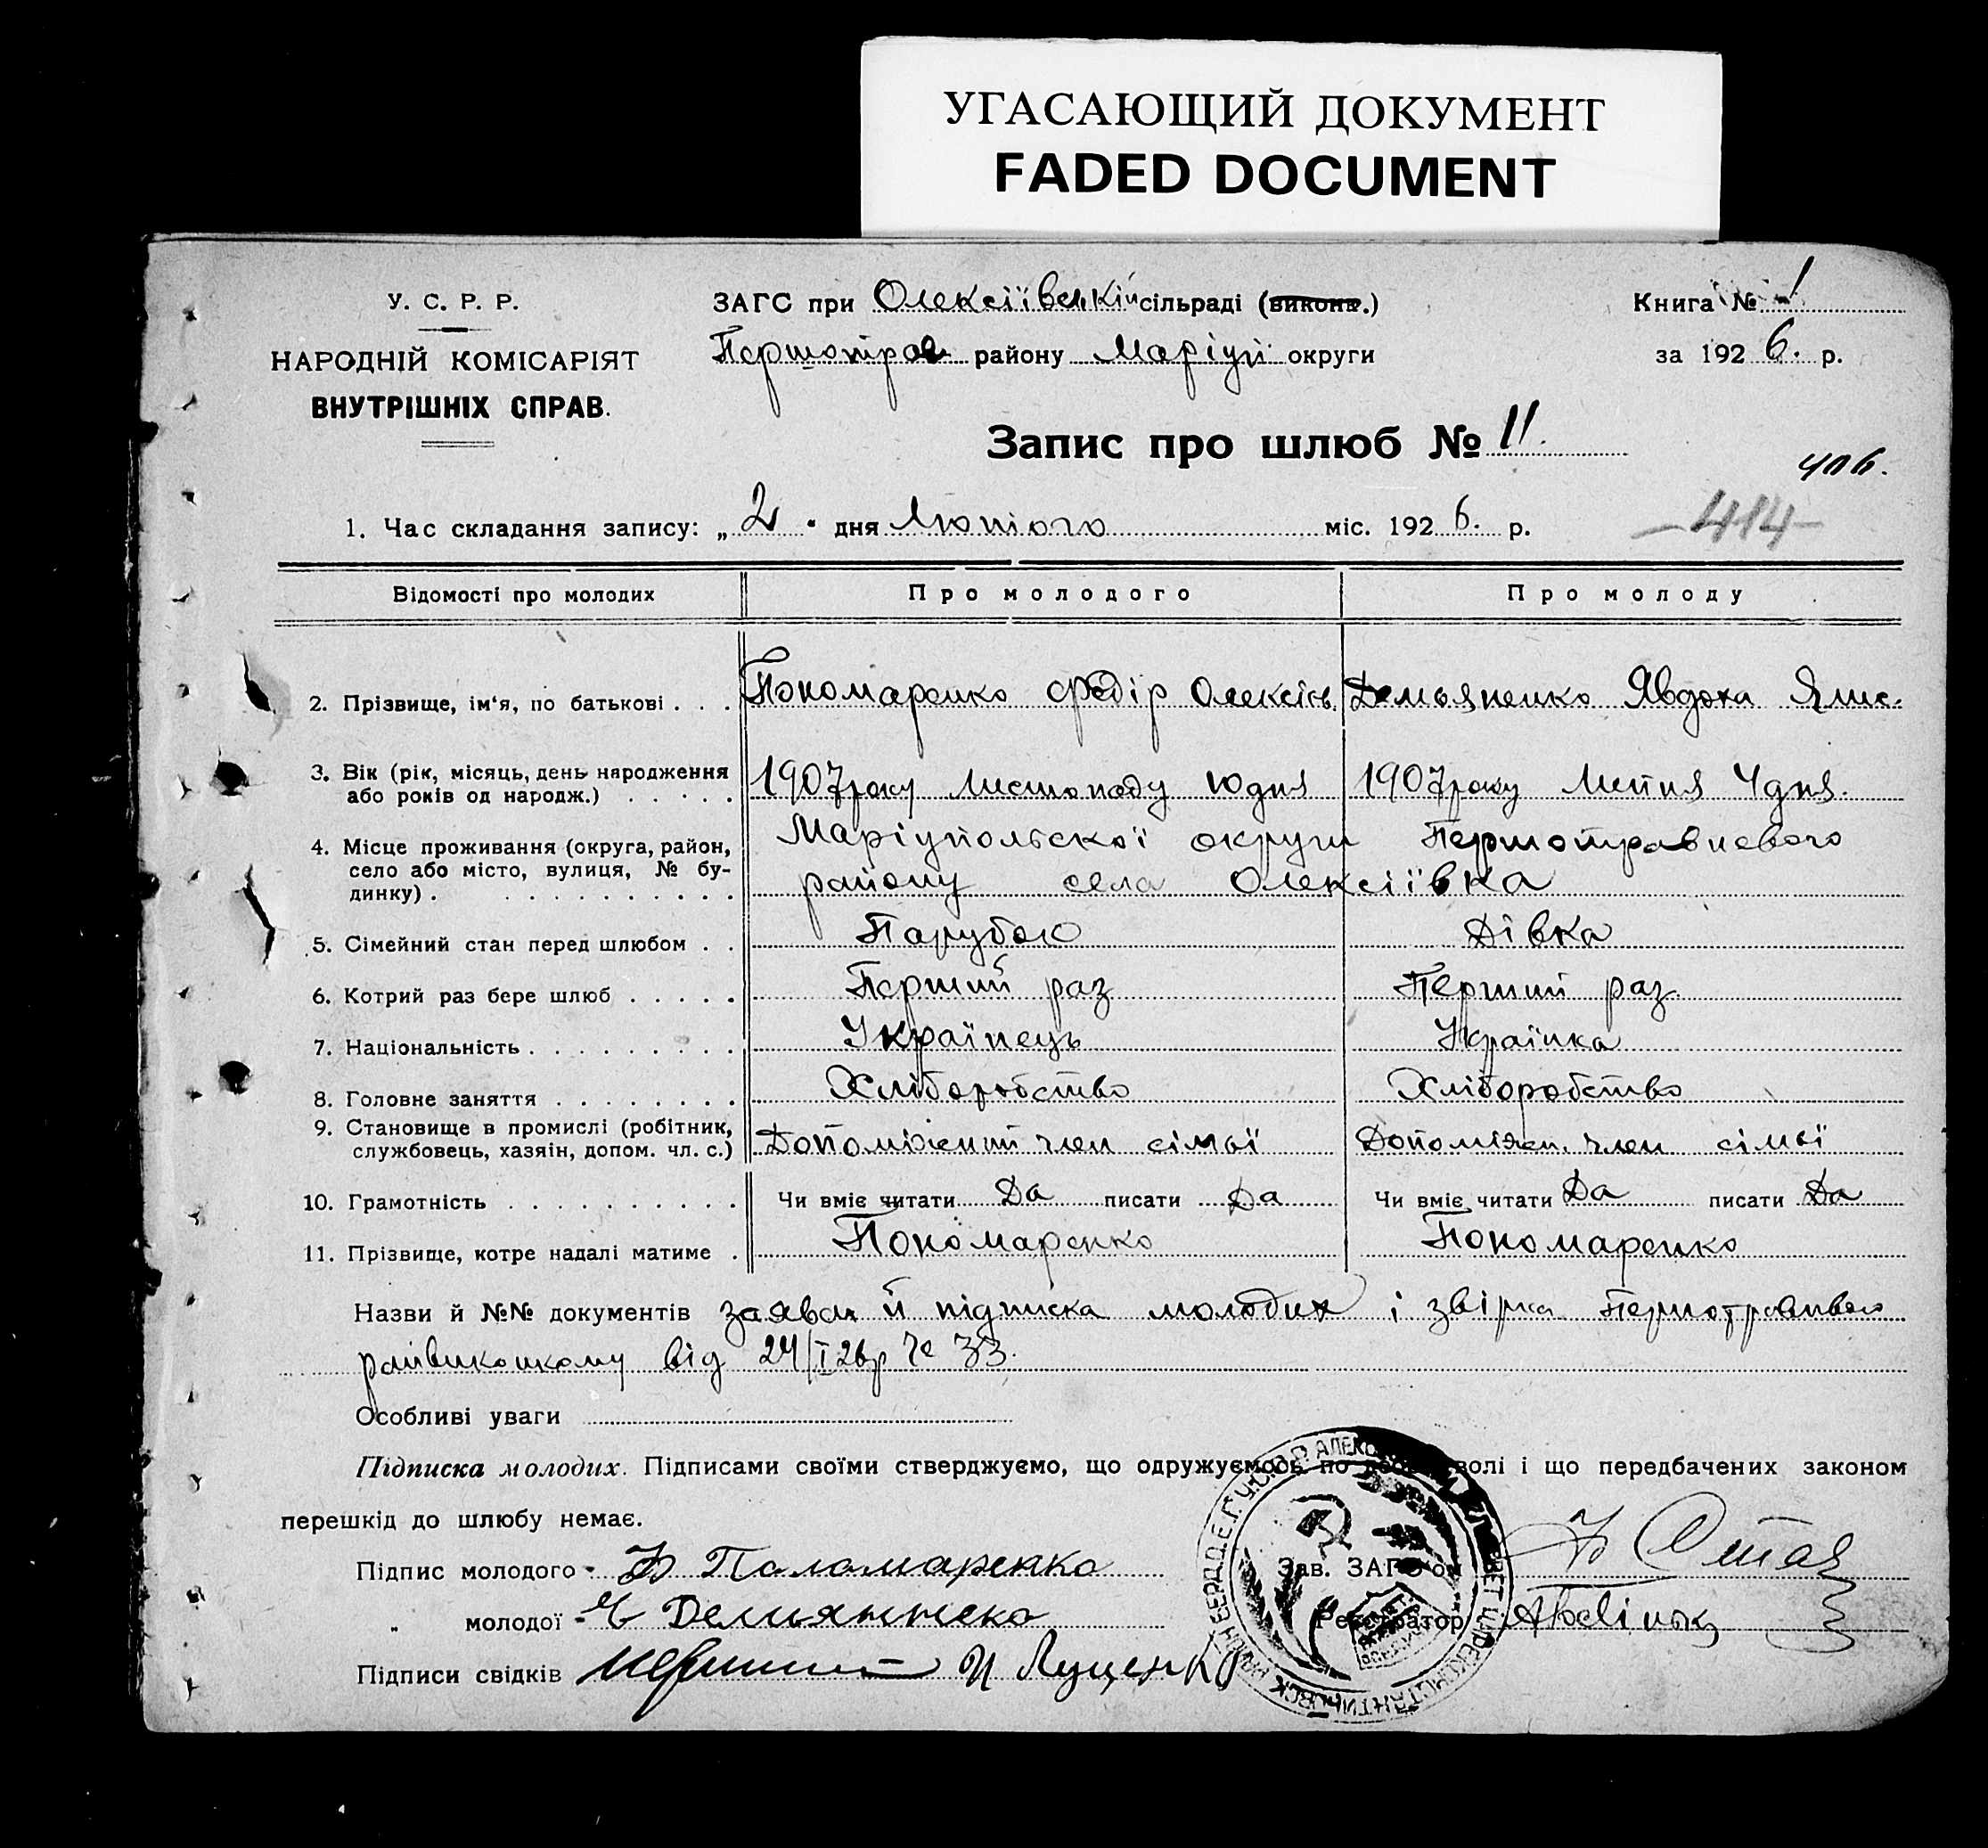 УГАСАЮЩИЙ ДОКУМЕНТ
FADED DOCUMENT
У. С. Р. Р.
НАРОДНІЙ КОМІСАРІЯТ
ВНУТРІШНІХ СПРАВ.
ЗАГС при Олексіївській сільраді (викона.)
Першотрав району Маріуп. округи
Книга № 1
за 192 6. р.
Запис про шлюб № 11.
406.
-414-
1. Час складання запису: „ 2 " дня Лютого міс. 192 6. р.
Відомості про молодих Про молодого Про молоду
2. Прізвище, ім'я, по батькові . . . Пономаренко Федір Олексієв. Демьяненко Явдоха
3. Вік (рік, місяць, день народження 1907 року Листопаду 10 дня 1907 року Липня 4 дня.
або років од народж.) . . . . .
4. Місце проживання (округа, район, Маріупольської округи Першотравневого
село або місто, вулиця, № бу- району села Олексіївка
динку) . . . . . . . . . . .
5. Сімейний стан перед шлюбом . . Парубок Дівка
6. Котрий раз бере шлюб . . . . . Перший раз Перший раз
7. Національність . . . . . . . . . Українець Українка
8. Головне заняття . . . . . . . . Хліборобство Хліборобство
9. Становище в промислі (робітник, Допоміжний член сімьї Допоміжн. член сімьї
службовець, хазяін, допом. чл. с.)
10. Грамотність . . . . . . . . . . Чи вміє читати Да писати Да Чи вміє читати Да писати Да
11. Прізвище, котре надалі матиме . Пономаренко Пономаренко
Назви й №№ документів заява й підписка молодих і звірка Першотравневого
райвиконкому від 24/I 26р № 33.
Особливі уваги
Підписка молодих. Підписами своїми стверджуємо, що одружуємось по волі і що передбачених законом
перешкід до шлюбу немає.
Підпис молодого Паламаренко
„ молодої Демьяненко
Підписи свідків И Луценко
Зав. ЗАГС'ом
Реєстратор